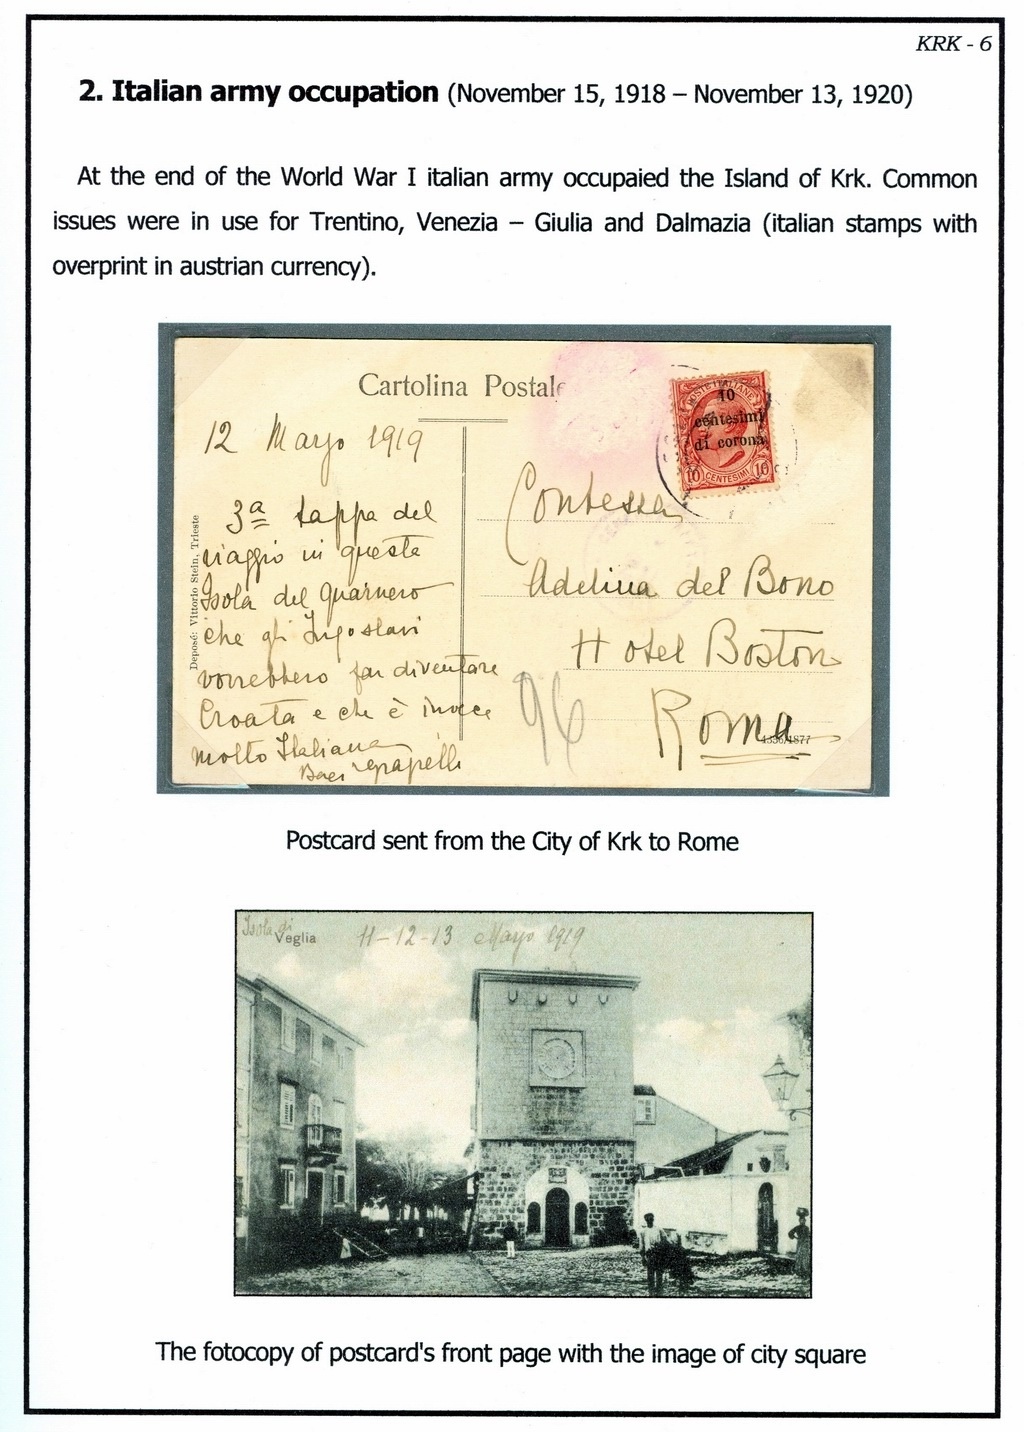 KRK - 6
2. Italian army occupation (November 15, 1918 – November 13, 1920)
At the end of the World War I italian army occupaied the Island of Krk. Common
issues were in use for Trentino, Venezia – Giulia and Dalmazia (italian stamps with
overprint in austrian currency).
Cartolina Postale
POSTE ITALIANE
10
centesimi
di corona
10 CENTESIMI 10
12 Maggio 1919
3a tappa del
viaggio in questa
Isola del Quarnero
che gli Jugoslavi
vorrebbero far diventare
Croata e che è invece
molto Italiana
Baci
Deposé: Vittorio Stein, Trieste
Contessa
Adelina del Bono
Hotel Boston
Roma
96
Postcard sent from the City of Krk to Rome
Isola di
Veglia
11-12-13 Maggio 1919
The fotocopy of postcard's front page with the image of city square